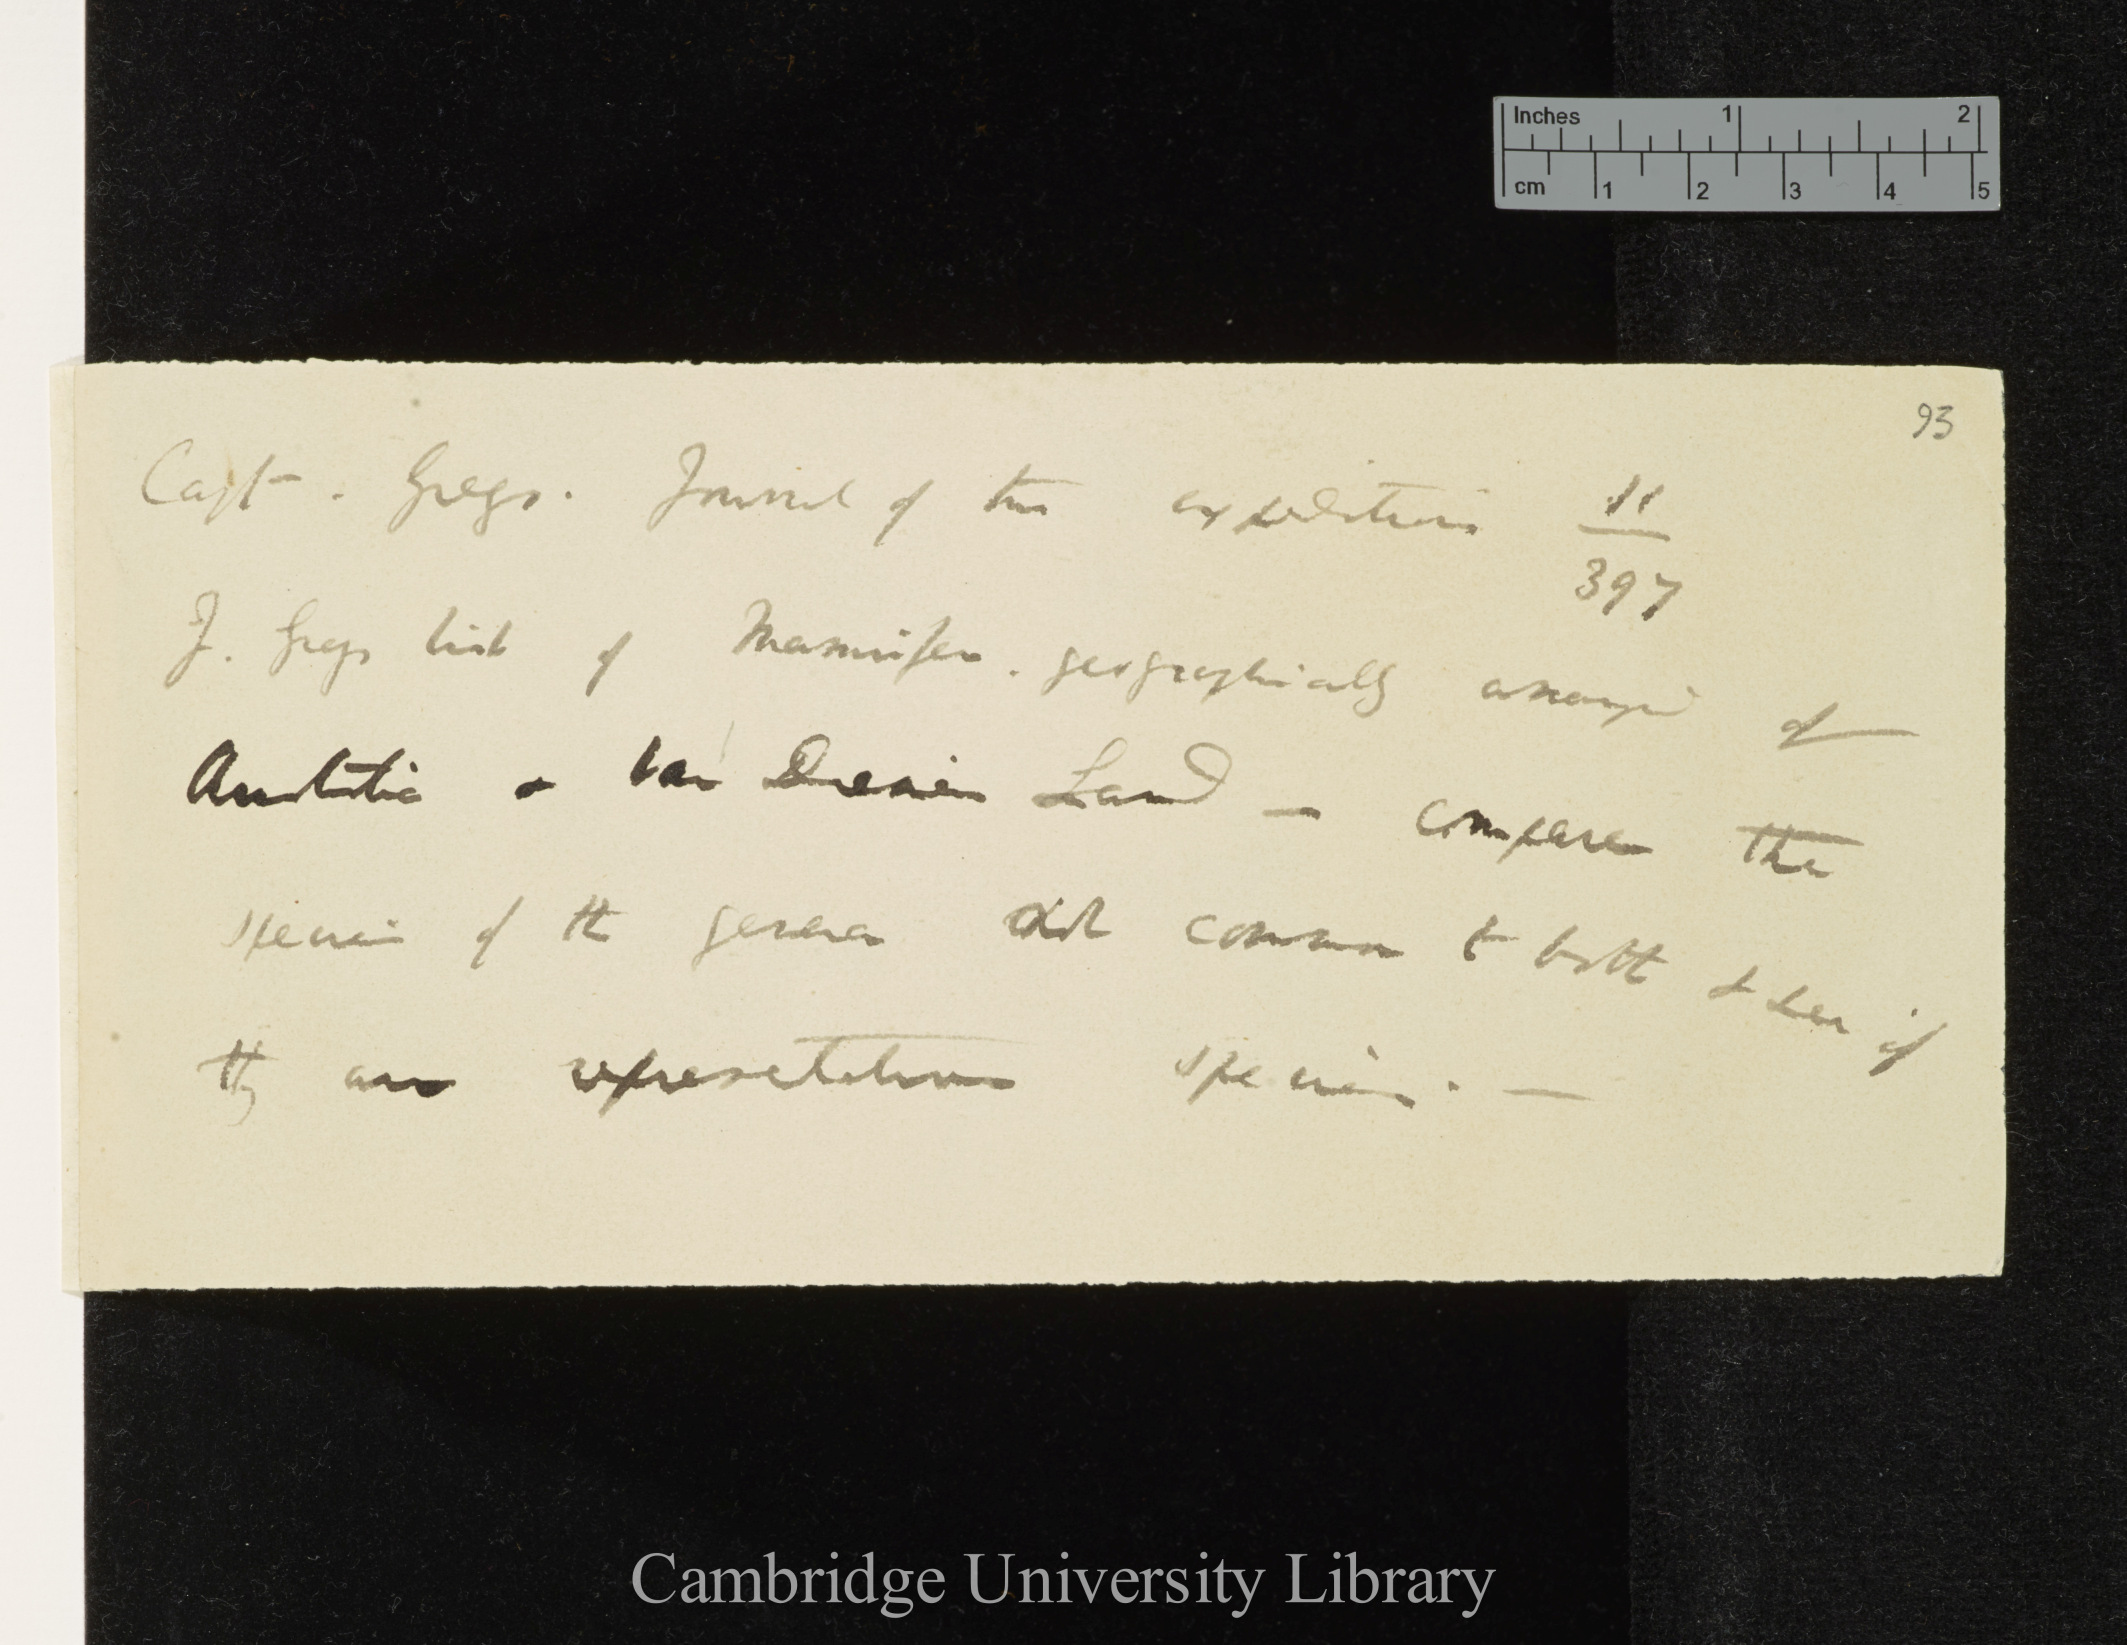 Inches 1 2
cm 1 2 3 4 5
93
Capt. Greys. Journal of two expeditions 11
397
J. Greys list of Mammifera. geographically arranged of
Australia & Van Diemen Land — compare the
species of the genera common to both & see if
they are representative species. —
Cambridge University Library